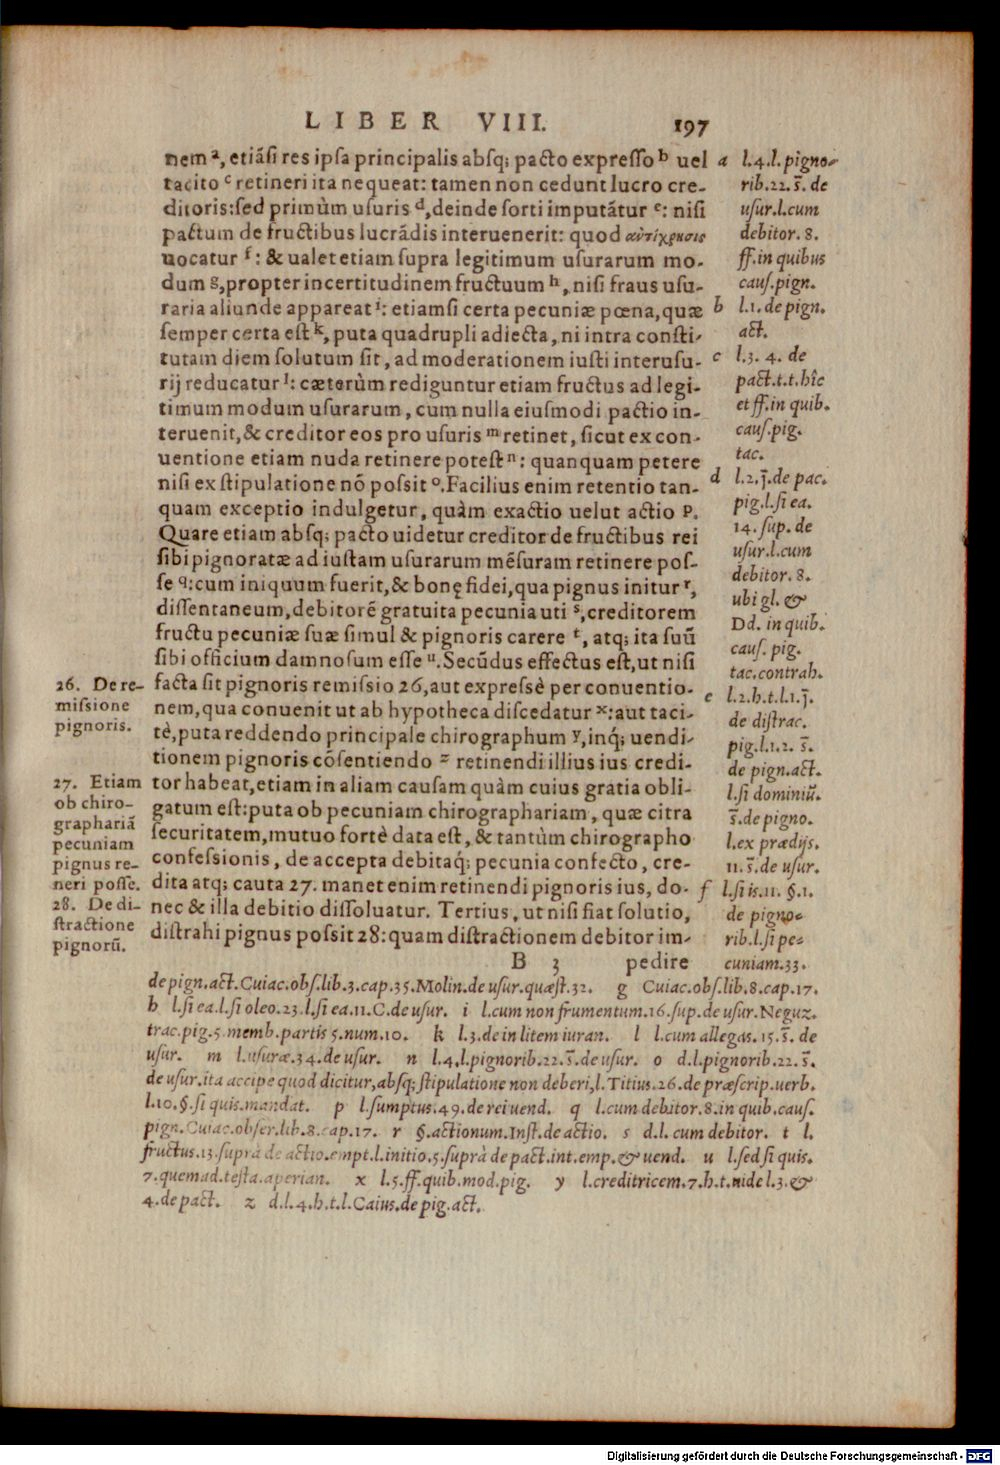 LIBER VIII. 197
nem ᵃ, etiãſi res ipſa principalis abſq; pacto expreſſo ᵇ uel
tacito ᶜ retineri ita nequeat: tamen non cedunt lucro cre-
ditoris: ſed primùm uſuris ᵈ, deinde ſorti imputãtur ᵉ: niſi
pactum de fructibus lucrãdis interuenerit: quod αὐτίχρησις
uocatur ᶠ: & ualet etiam ſupra legitimum uſurarum mo-
dum ᵍ, propter incertitudinem fructuum ʰ, niſi fraus uſu-
raria aliunde appareat ⁱ: etiamſi certa pecuniæ pœna, quæ
ſemper certa eſt ᵏ, puta quadrupli adiecta, ni intra conſti-
tutam diem ſolutum ſit, ad moderationem iuſti interuſu-
rij reducatur ˡ: cæterùm rediguntur etiam fructus ad legi-
timum modum uſurarum, cum nulla eiuſmodi pactio in-
teruenit, & creditor eos pro uſuris ᵐ retinet, ſicut ex con-
uentione etiam nuda retinere poteſt ⁿ: quanquam petere
niſi ex ſtipulatione nõ poſsit ᵒ. Facilius enim retentio tan-
quam exceptio indulgetur, quàm exactio uelut actio ᵖ.
Quare etiam abſq; pacto uidetur creditor de fructibus rei
ſibi pignoratæ ad iuſtam uſurarum mẽſuram retinere poſ-
ſe q: cum iniquum fuerit, & bonę fidei, qua pignus initur ʳ,
diſſentaneum, debitorẽ gratuita pecunia uti ˢ, creditorem
fructu pecuniæ ſuæ ſimul & pignoris carere ᵗ, atq; ita ſuũ
ſibi officium damnoſum eſſe ᵘ. Secũdus effectus eſt, ut niſi
facta ſit pignoris remiſsio 26, aut expreſsè per conuentio-
nem, qua conuenit ut ab hypotheca diſcedatur ˣ: aut taci-
tè, puta reddendo principale chirographum ʸ, inq; uendi-
tionem pignoris cõſentiendo ᶻ retinendi illius ius credi-
tor habeat, etiam in aliam cauſam quàm cuius gratia obli-
gatum eſt: puta ob pecuniam chirographariam, quæ citra
ſecuritatem, mutuo fortè data eſt, & tantùm chirographo
confeſsionis, de accepta debitaq; pecunia confecto, cre-
dita atq; cauta 27. manet enim retinendi pignoris ius, do-
nec & illa debitio diſſoluatur. Tertius, ut niſi fiat ſolutio,
diſtrahi pignus poſsit 28: quam diſtractionem debitor im-
B 3 pedire
26. De re-
miſsione
pignoris.
27. Etiam
ob chiro-
graphariã
pecuniam
pignus re-
neri poſſe.
28. De di-
ſtractione
pignorũ.
a l.4.l.pigno-
rib.22.s̃. de
uſur.l.cum
debitor.8.
ff.in quibus
cauſ.pign.
b l.1.de pign.
act.
c l.3. 4. de
pact.t.t.hîc
et ff.in quib.
cauſ.pig.
tac.
d l.2.j̃.de pac.
pig.l.ſi ea.
14.ſup. de
uſur.l.cum
debitor.8.
ubi gl. &
Dd. in quib.
cauſ. pig.
tac.contrah.
e l.2.h.t.l.1.j̃.
de diſtrac.
pig.l.1.2. s̃.
de pign.act.
l.ſi dominiũ.
s̃.de pigno.
l.ex prædijs.
11.s̃.de uſur.
f l.ſi is.11. §.1.
de pigno-
rib.l.ſi pe-
cuniam.33.
de pign.act.Cuiac.obſ.lib.3.cap.35.Molin.de uſur.quæſt.32. g Cuiac.obſ.lib.8.cap.17.
h l.ſi ea.l.ſi oleo.23.l.ſi ea.11.C.de uſur. i l.cum non frumentum.16.ſup.de uſur.Neguz.
trac.pig.5.memb.partis 5.num.10. k l.3.de in litem iuran. l l.cum allegas.15.s̃. de
uſur. m l.uſuræ.34.de uſur. n l.4.l.pignorib.22.s̃.de uſur. o d.l.pignorib.22.s̃.
de uſur.ita accipe quod dicitur, abſq; ſtipulatione non deberi,l.Titius.26.de præſcrip.uerb.
l.10.§.ſi quis.mandat. p l.ſumptus.49.de rei uend. q l.cum debitor.8.in quib.cauſ.
pign.Cuiac.obſer.lib.8.cap.17. r §.actionum.Inſt.de actio. s d.l.cum debitor. t l.
fructus.13.ſuprà de actio.empt.l.initio.5.ſuprà de pact.int.emp.& uend. u l.ſed ſi quis.
7.quemad.teſta.aperian. x l.5.ff.quib.mod.pig. y l.creditricem.7.h.t.uide l.3.&
4.de pact. z d.l.4.h.t.l.Caius.de pig.act.
Digitalisierung gefördert durch die Deutsche Forschungsgemeinschaft - DFG